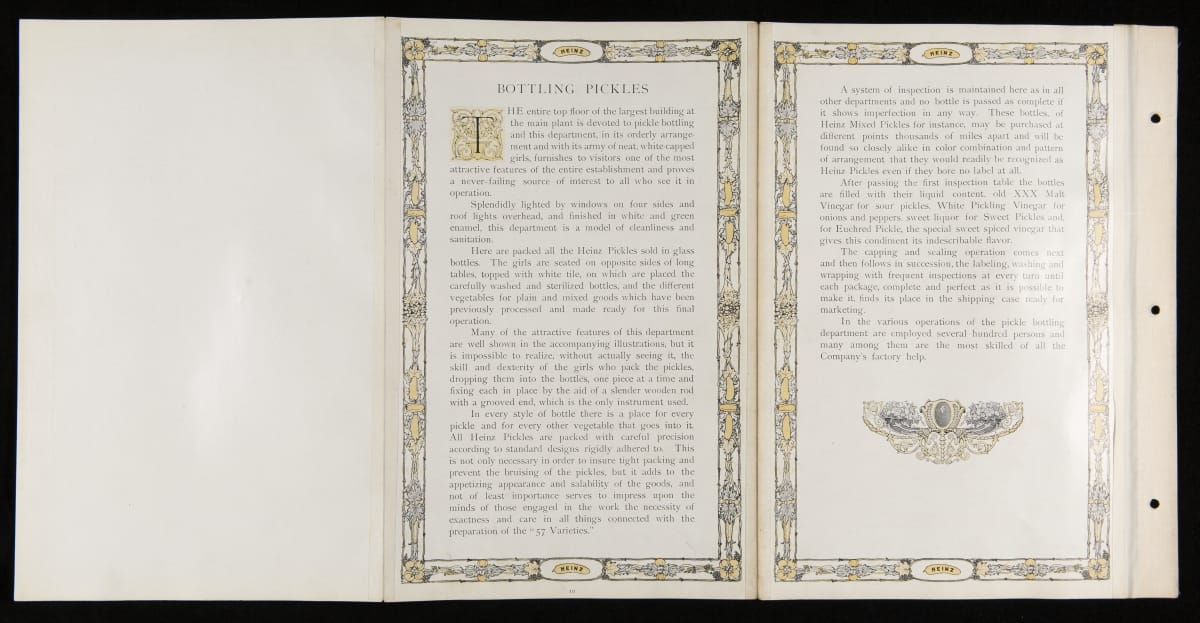 HEINZ
BOTTLING PICKLES
THE entire top floor of the largest building at
the main plant is devoted to pickle bottling
and this department, in its orderly arrange-
ment and with its army of neat, white-capped
girls, furnishes to visitors one of the most
attractive features of the entire establishment and proves
a never-failing source of interest to all who see it in
operation.
Splendidly lighted by windows on four sides and
roof lights overhead, and finished in white and green
enamel, this department is a model of cleanliness and
sanitation.
Here are packed all the Heinz Pickles sold in glass
bottles. The girls are seated on opposite sides of long
tables, topped with white tile, on which are placed the
carefully washed and sterilized bottles, and the different
vegetables for plain and mixed goods which have been
previously processed and made ready for this final
operation.
Many of the attractive features of this department
are well shown in the accompanying illustrations, but it
is impossible to realize, without actually seeing it, the
skill and dexterity of the girls who pack the pickles,
dropping them into the bottles, one piece at a time and
fixing each in place by the aid of a slender wooden rod
with a grooved end, which is the only instrument used.
In every style of bottle there is a place for every
pickle and for every other vegetable that goes into it.
All Heinz Pickles are packed with careful precision
according to standard designs rigidly adhered to. This
is not only necessary in order to insure tight packing and
prevent the bruising of the pickles, but it adds to the
appetizing appearance and salability of the goods, and
not of least importance serves to impress upon the
minds of those engaged in the work the necessity of
exactness and care in all things connected with the
preparation of the "57 Varieties."
HEINZ
HEINZ
A system of inspection is maintained here as in all
other departments and no bottle is passed as complete if
it shows imperfection in any way. These bottles, of
Heinz Mixed Pickles for instance, may be purchased at
different points thousands of miles apart and will be
found so closely alike in color combination and pattern
of arrangement that they would readily be recognized as
Heinz Pickles even if they bore no label at all.
After passing the first inspection table the bottles
are filled with their liquid content, old XXX Malt
Vinegar for sour pickles, White Pickling Vinegar for
onions and peppers, sweet liquor for Sweet Pickles and,
for Euchred Pickle, the special sweet spiced vinegar that
gives this condiment its indescribable flavor.
The capping and sealing operation comes next
and then follows in succession, the labeling, washing and
wrapping with frequent inspections at every turn until
each package, complete and perfect as it is possible to
make it, finds its place in the shipping case ready for
marketing.
In the various operations of the pickle bottling
department are employed several hundred persons and
many among them are the most skilled of all the
Company's factory help.
HEINZ